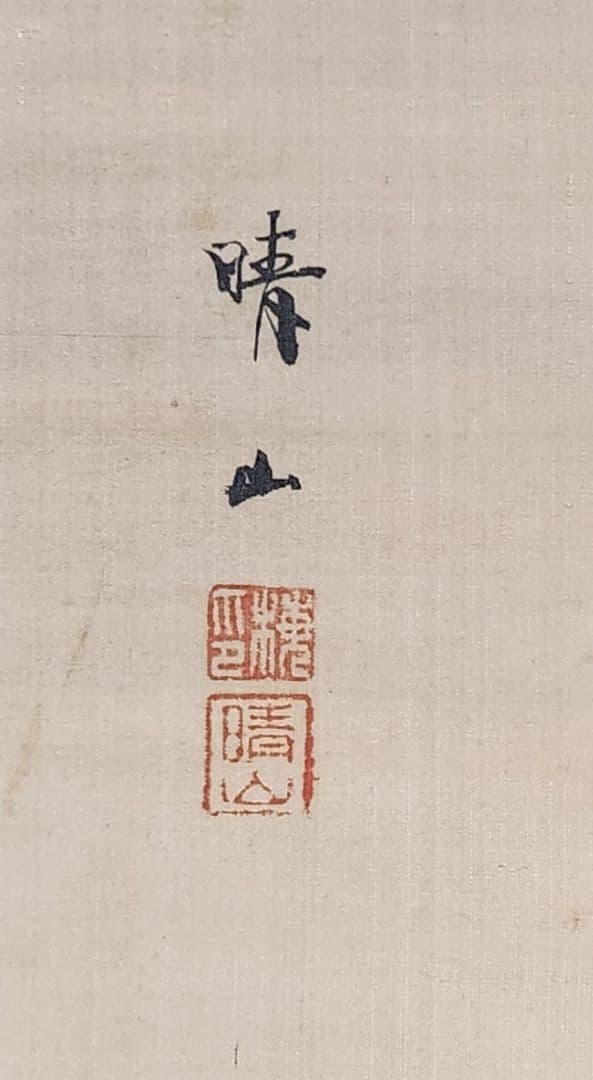 晴
山
晴
山